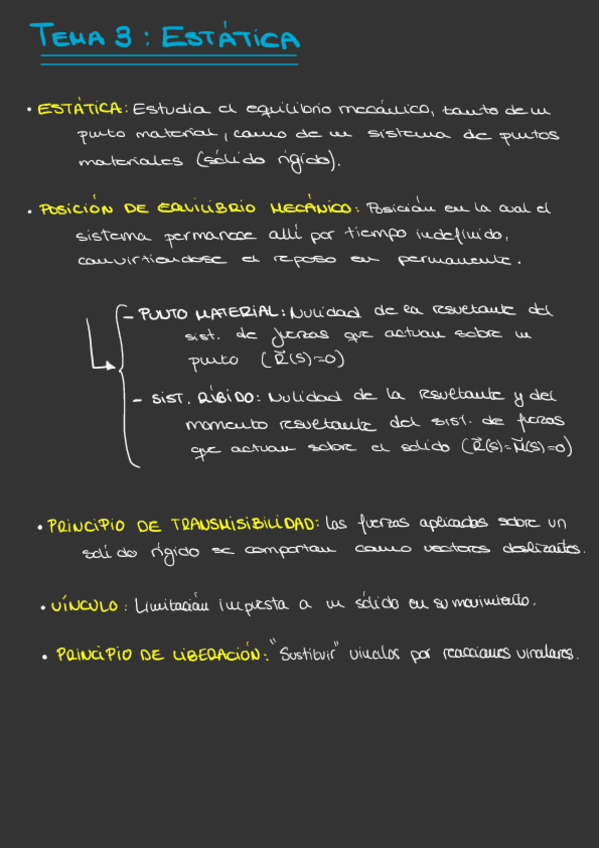 TEMA 3: ESTÁTICA
• ESTÁTICA: Estudia el equilibrio mecánico, tanto de un
punto material, como de un sistema de puntos
materiales (sólido rígido).
• POSICIÓN DE EQUILIBRIO MECÁNICO: Posición en la cual el
sistema permanece allí por tiempo indefinido,
convirtiendose el reposo en permanente.
- PUNTO MATERIAL: Nulidad de la resultante del
sist. de fuerzas que actuan sobre un
punto (R⃗(S)=0)
- SIST. RÍGIDO: Nulidad de la resultante y del
momento resultante del sist. de fuerzas
que actuan sobre el sólido (R⃗(S)=M⃗(S)=0)
• PRINCIPIO DE TRANSMISIBILIDAD: Las fuerzas aplicadas sobre un
sólido rígido se comportan como vectores deslizantes.
• VÍNCULO: Limitación impuesta a un sólido en su movimiento.
• PRINCIPIO DE LIBERACIÓN: "Sustituir" vínculos por reacciones vinculares.